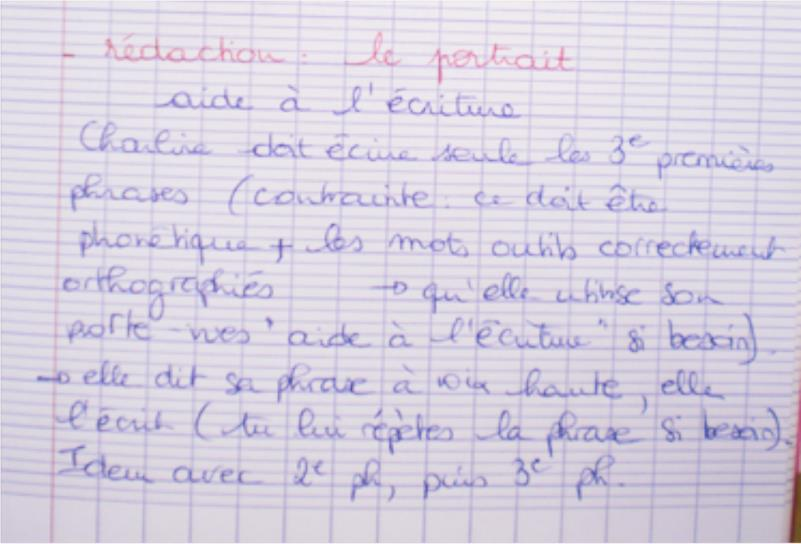 - rédaction : le portrait
aide à l'écriture
Charline doit écrire seule les 3e premières
phrases (contrainte : ce doit être
phonétique + les mots outils correctement
orthographiés → qu'elle utilise son
porte-vues "aide à l'écriture" si besoin).
→ elle dit sa phrase à voix haute, elle
l'écrit (tu lui répètes la phrase si besoin).
Idem avec 2e ph, puis 3e ph.